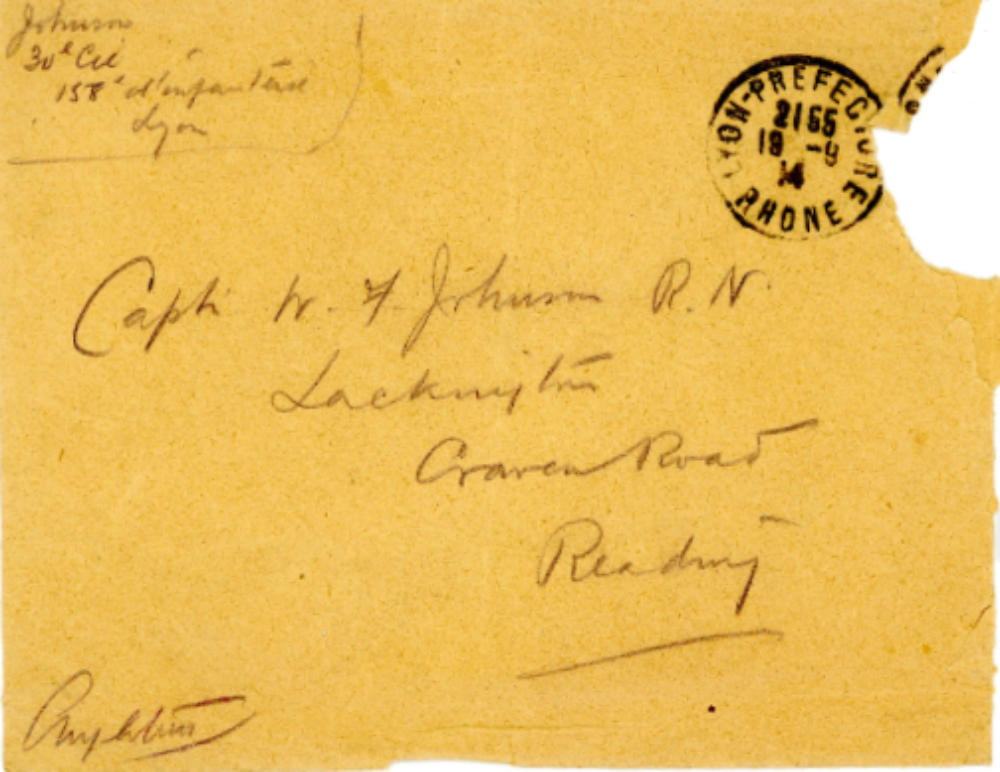 Johnson
30e Cie
158e d'infanterie
Lyon
LYON-PREFECTURE
2155
19 -9
14
RHONE
Capt. W. F. Johnson R.N.
Lacknington
Craven Road
Reading
Angleterre